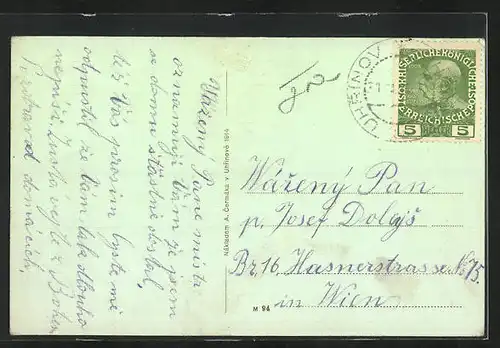 Vážený Pane mistr
oznamuji Vám že jsem
se domu šťastně dostal,
též Vás prosím byste mě
odpustil že Vám tak dlouho
nepíši. Zustávejte z Bohem
Pozdrav od domácích,
Nákladem A. Čermáka v Uhřínově 1914
M 94
UHŘÍNOV
KAISERLICHE KÖNIGLICHE
ÖSTERREICHISCHE
5 5
Vážený Pan
p. Josef Dolejš
Bz. 16. Hasnerstrasse No 75.
in Wien